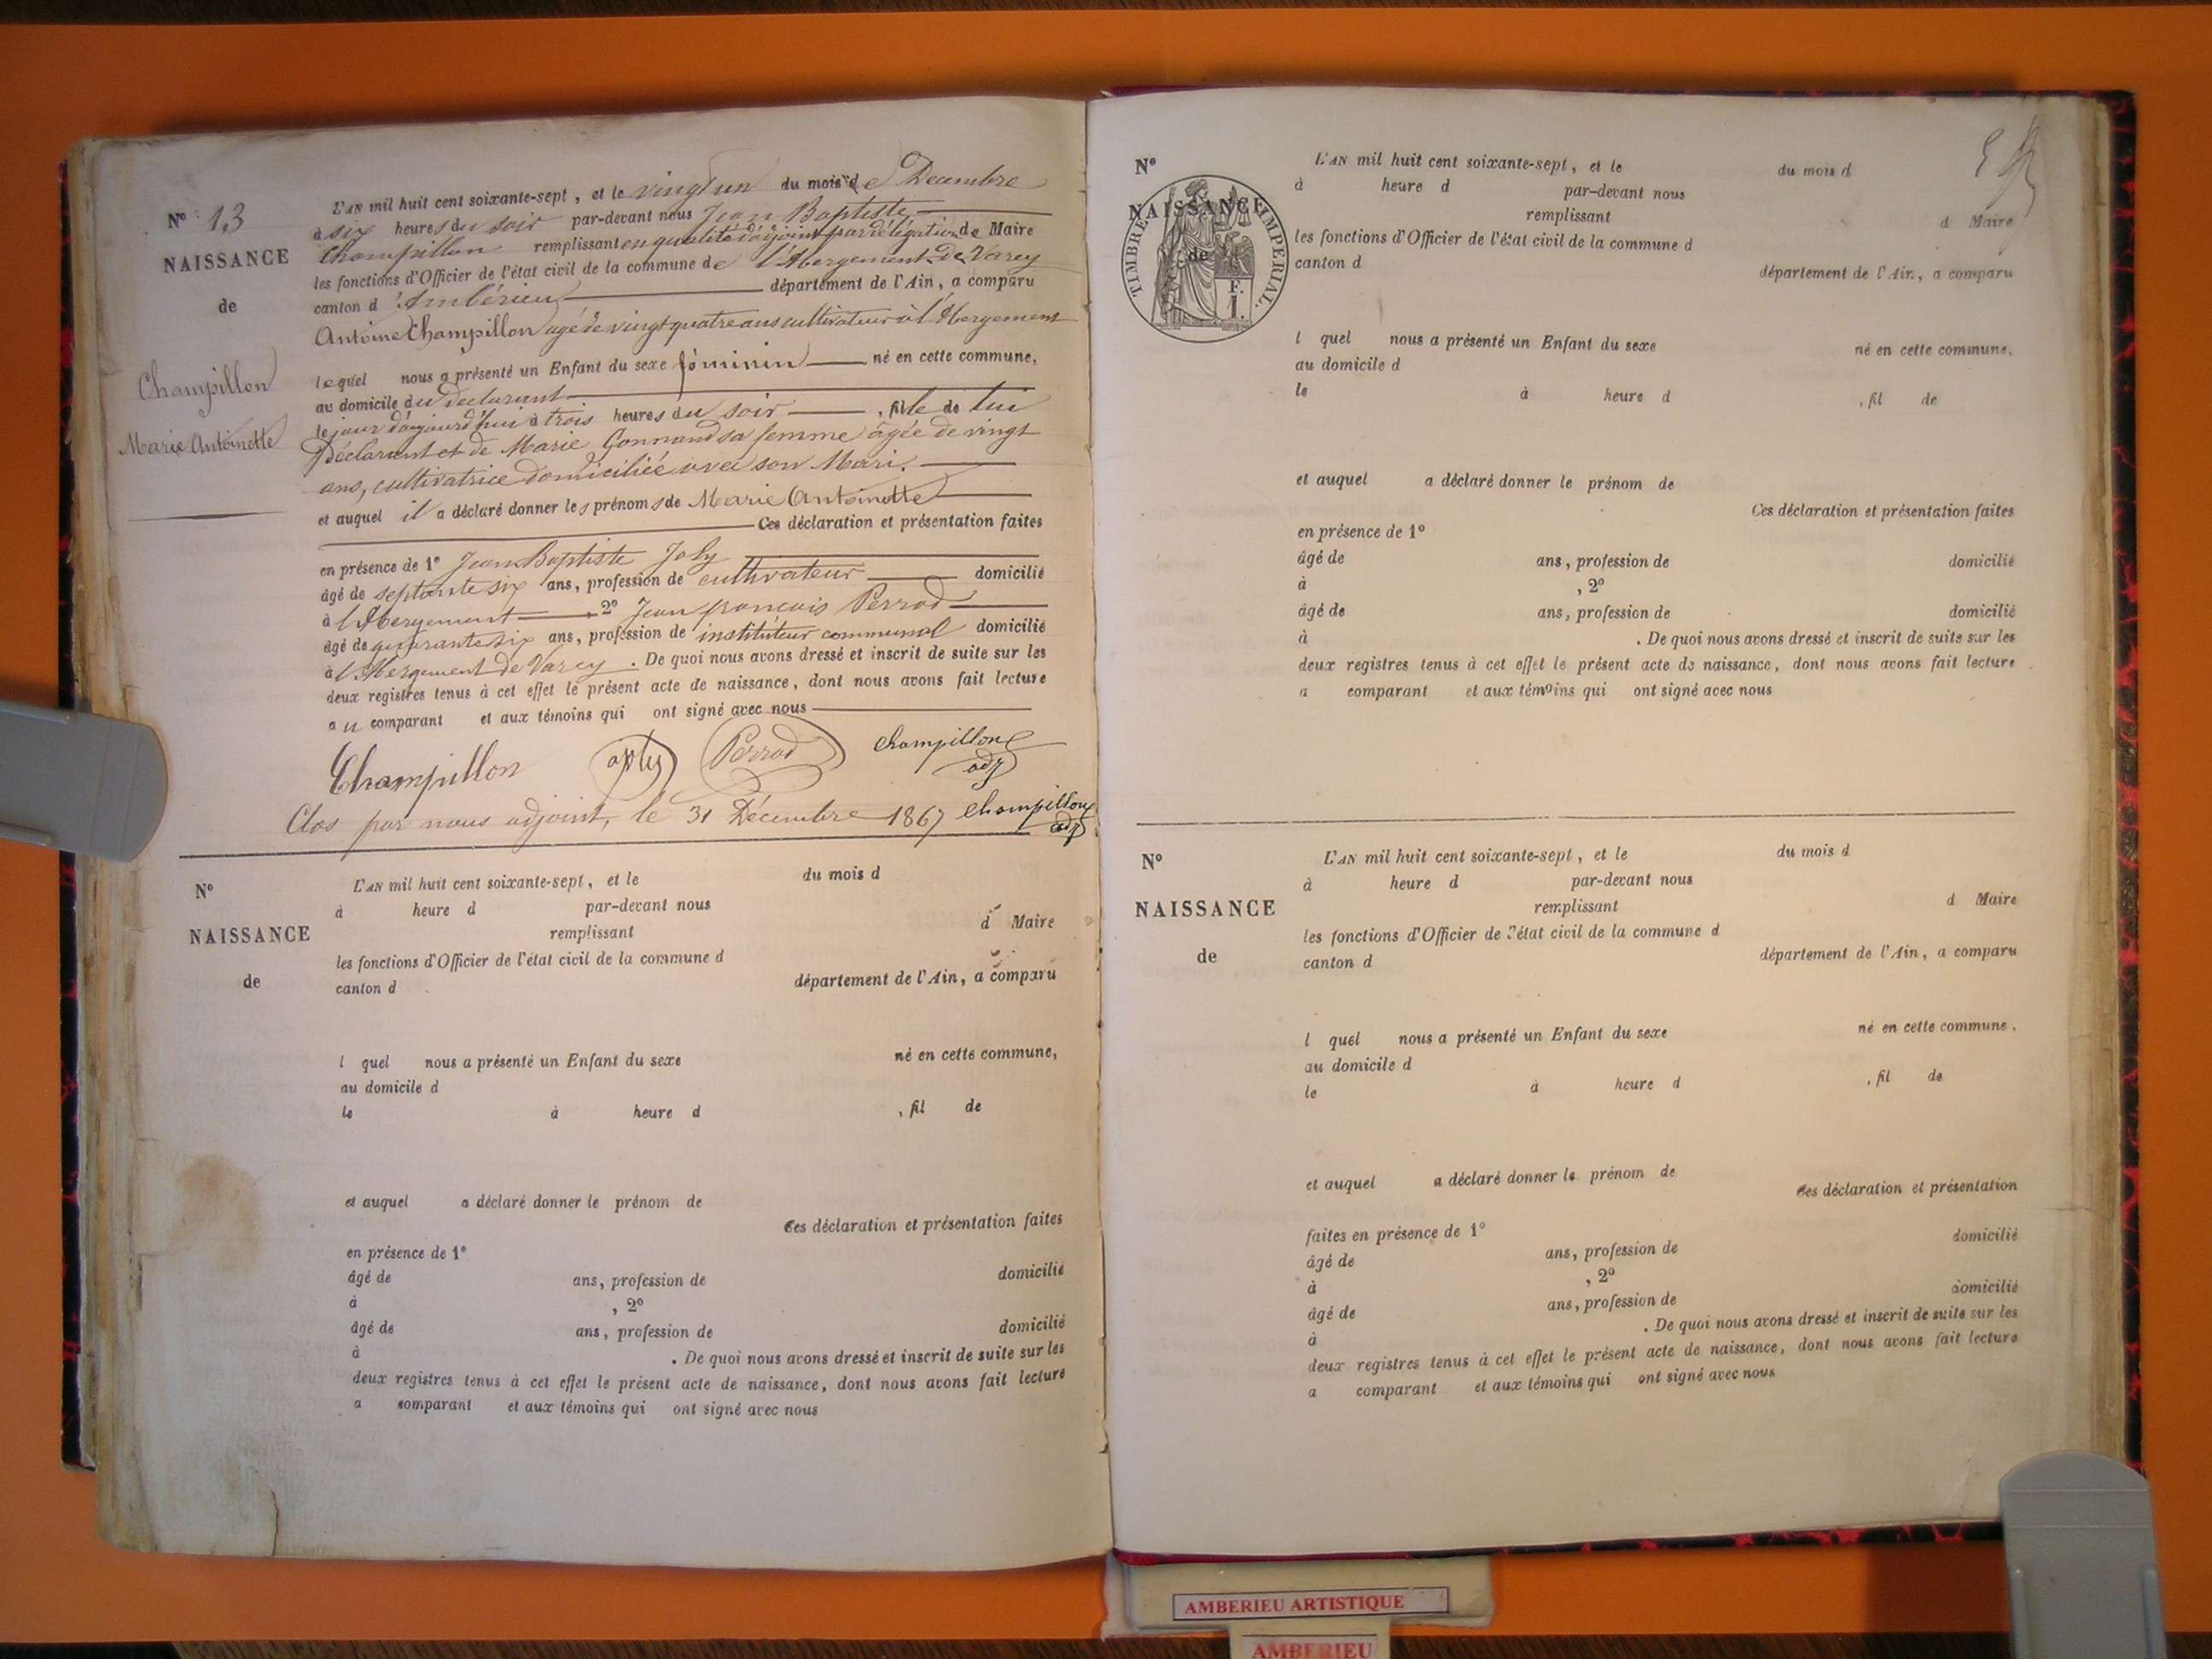 N° 13
NAISSANCE
de
Champillon
Marie Antoinette
L'AN mil huit cent soixante-sept, et le vingt un du mois de Décembre
à six heures du soir par-devant nous Jean Baptiste
Champillon remplissant en qualité d'adjoint par délégation de Maire
les fonctions d'Officier de l'état civil de la commune de l'Abergement-de-Varey
canton d'Ambérieu département de l'Ain, a comparu
Antoine Champillon agé de vingt quatre ans cultivateur à l'Abergement
lequel nous a présenté un Enfant du sexe féminin né en cette commune,
au domicile du declarant
le jour d'aujourd'hui à trois heures du soir, fille de lui
Déclarant et de Marie Gonnand sa femme âgée de vingt
ans, cultivatrice domiciliée avec son Mari.
et auquel il a déclaré donner les prénoms de Marie Antoinette
Ces déclaration et présentation faites
en présence de 1° Jean Baptiste Joly
âgé de septante six ans, profession de cultivateur domicilié
à l'Abergement, 2° Jean françois Perrod
âgé de quarante six ans, profession de instituteur communal domicilié
à l'Abergement de Varey. De quoi nous avons dressé et inscrit de suite sur les
deux registres tenus à cet effet le présent acte de naissance, dont nous avons fait lecture
au comparant et aux témoins qui ont signé avec nous
Champillon Perrod Champillon
adj
Clos par nous adjoint, le 31 Décembre 1867 Champillon
adj
N°
NAISSANCE
de
L'AN mil huit cent soixante-sept, et le du mois d
à heure d par-devant nous
remplissant d Maire
les fonctions d'Officier de l'état civil de la commune d
canton d département de l'Ain, a comparu
l quel nous a présenté un Enfant du sexe né en cette commune,
au domicile d
le à heure d , fil de
et auquel a déclaré donner le prénom de
Ces déclaration et présentation faites
en présence de 1°
âgé de ans, profession de domicilié
à , 2°
âgé de ans, profession de domicilié
à . De quoi nous avons dressé et inscrit de suite sur les
deux registres tenus à cet effet le présent acte de naissance, dont nous avons fait lecture
a comparant et aux témoins qui ont signé avec nous
N°
NAISSANCE
de
TIMBRE IMPERIAL.
F.
1.
L'AN mil huit cent soixante-sept, et le du mois d
à heure d par-devant nous
remplissant d Maire
les fonctions d'Officier de l'état civil de la commune d
canton d département de l'Ain, a comparu
l quel nous a présenté un Enfant du sexe né en cette commune,
au domicile d
le à heure d , fil de
et auquel a déclaré donner le prénom de
Ces déclaration et présentation faites
en présence de 1°
âgé de ans, profession de domicilié
à , 2°
âgé de ans, profession de domicilié
à . De quoi nous avons dressé et inscrit de suite sur les
deux registres tenus à cet effet le présent acte de naissance, dont nous avons fait lecture
a comparant et aux témoins qui ont signé avec nous
N°
NAISSANCE
de
L'AN mil huit cent soixante-sept, et le du mois d
à heure d par-devant nous
remplissant d Maire
les fonctions d'Officier de l'état civil de la commune d
canton d département de l'Ain, a comparu
l quel nous a présenté un Enfant du sexe né en cette commune,
au domicile d
le à heure d , fil de
et auquel a déclaré donner le prénom de
Ces déclaration et présentation
faites en présence de 1° domicilié
âgé de ans, profession de
à , 2° domicilié
âgé de ans, profession de
à . De quoi nous avons dressé et inscrit de suite sur les
deux registres tenus à cet effet le présent acte de naissance, dont nous avons fait lecture
a comparant et aux témoins qui ont signé avec nous
AMBERIEU ARTISTIQUE
AMBERIEU